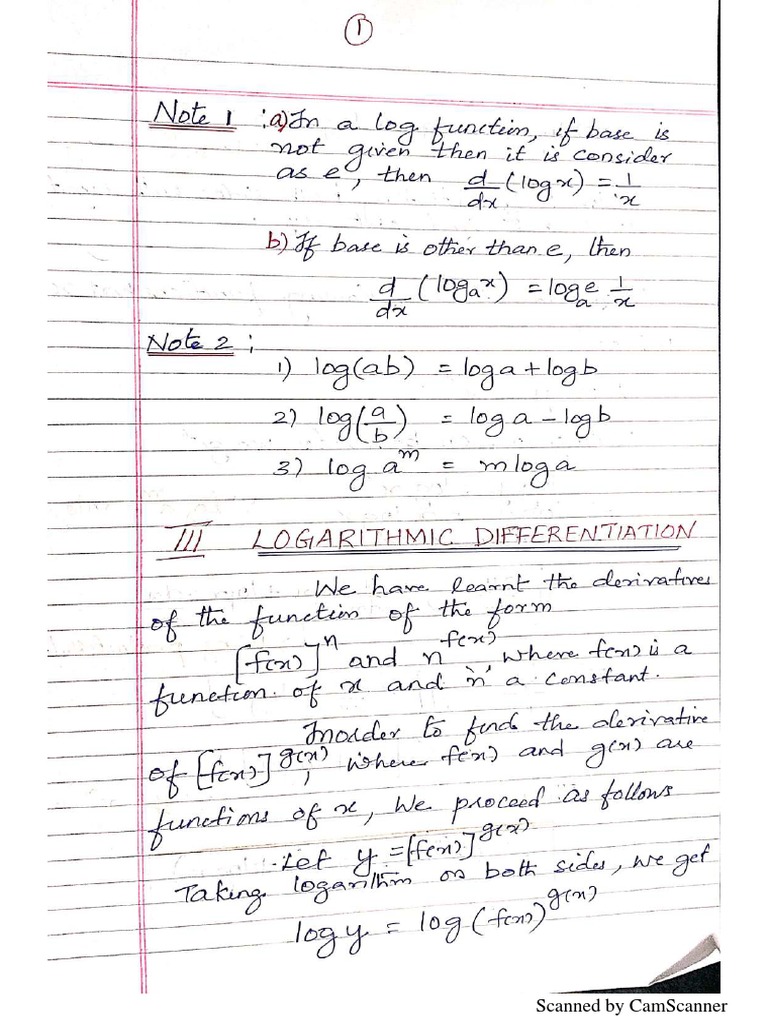 1
Note 1 : a) In a log function, if base is
not given then it is consider
as e, then d/dx (log x) = 1/x
b) If base is other than e, then
d/dx (logₐx) = logₐe 1/x
Note 2 :
1) log(ab) = log a + log b
2) log(a/b) = log a - log b
3) log a^m = m log a
III LOGARITHMIC DIFFERENTIATION
We have learnt the derivatives
of the function of the form
[f(x)]^n and n^f(x), where f(x) is a
function of x and 'n' a constant.
Inorder to find the derivative
of [f(x)]^g(x), where f(x) and g(x) are
functions of x, We proceed as follows
Let y = [f(x)]^g(x)
Taking logarithm on both sides, we get
log y = log (f(x))^g(x)
Scanned by CamScanner